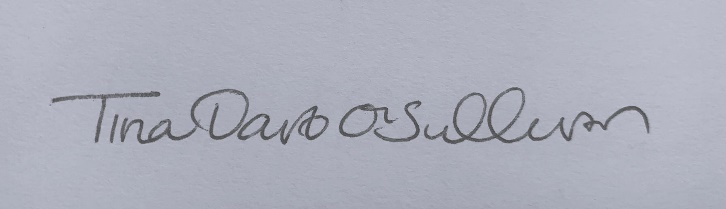 Tina Darb O'Sullivan